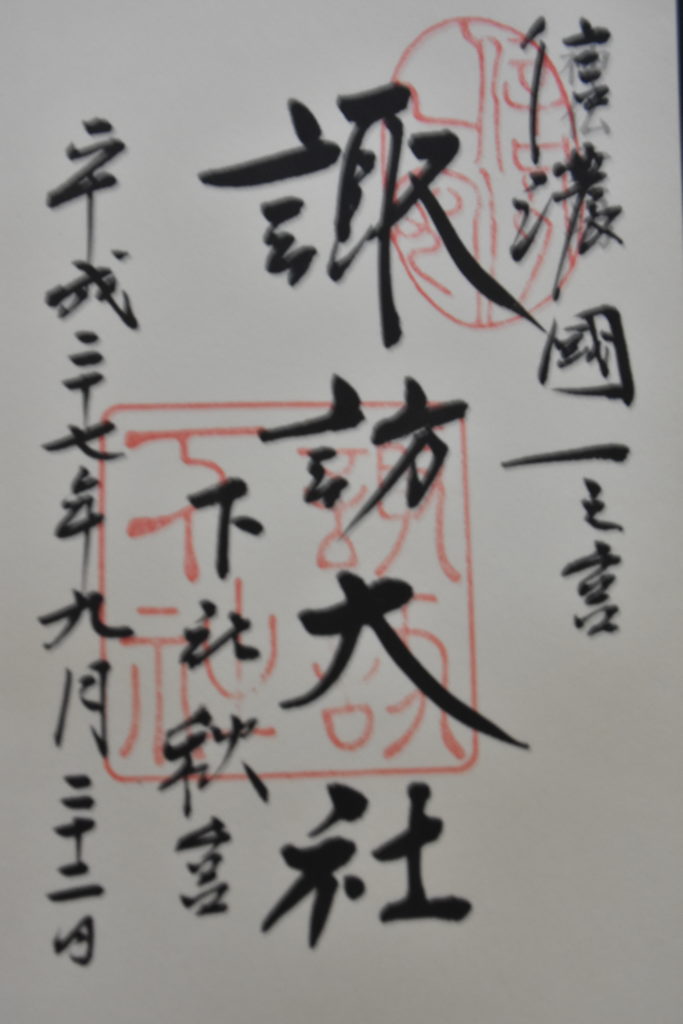 信濃國一之宮
諏訪大社
下社秋宮
平成二十七年九月二十二日
諏訪下社